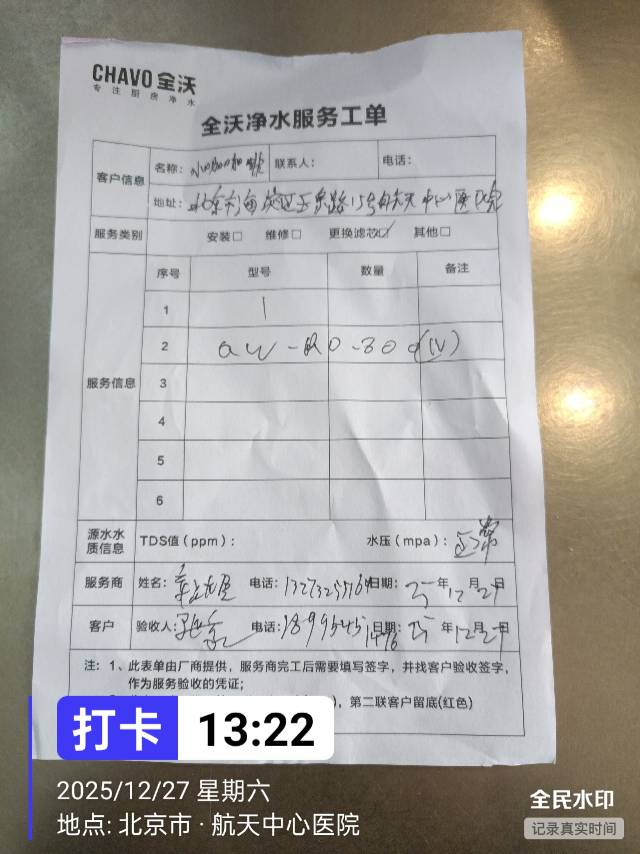 CHAVO 全沃
专 注 厨 房 净 水
全沃净水服务工单
客户信息 名称： 联系人： 电话：
地址：北京市海淀区玉泉路15号航天中心医院
服务类别 安装□ 维修□ 更换滤芯☑ 其他□
序号 型号 数量 备注
1 |
2 QW-RO-800(IV)
服务信息 3
4
5
6
源水水质信息 TDS值（ppm）： 水压（mpa）：正常
服务商 姓名： 电话： 日期：25年12月27日
客户 验收人： 电话： 日期：25年12月27日
注：1、此表单由厂商提供，服务商完工后需要填写签字，并找客户验收签字，
作为服务验收的凭证；
），第二联客户留底(红色)
打卡 13:22
2025/12/27 星期六
地点: 北京市 · 航天中心医院
全民水印
记录真实时间